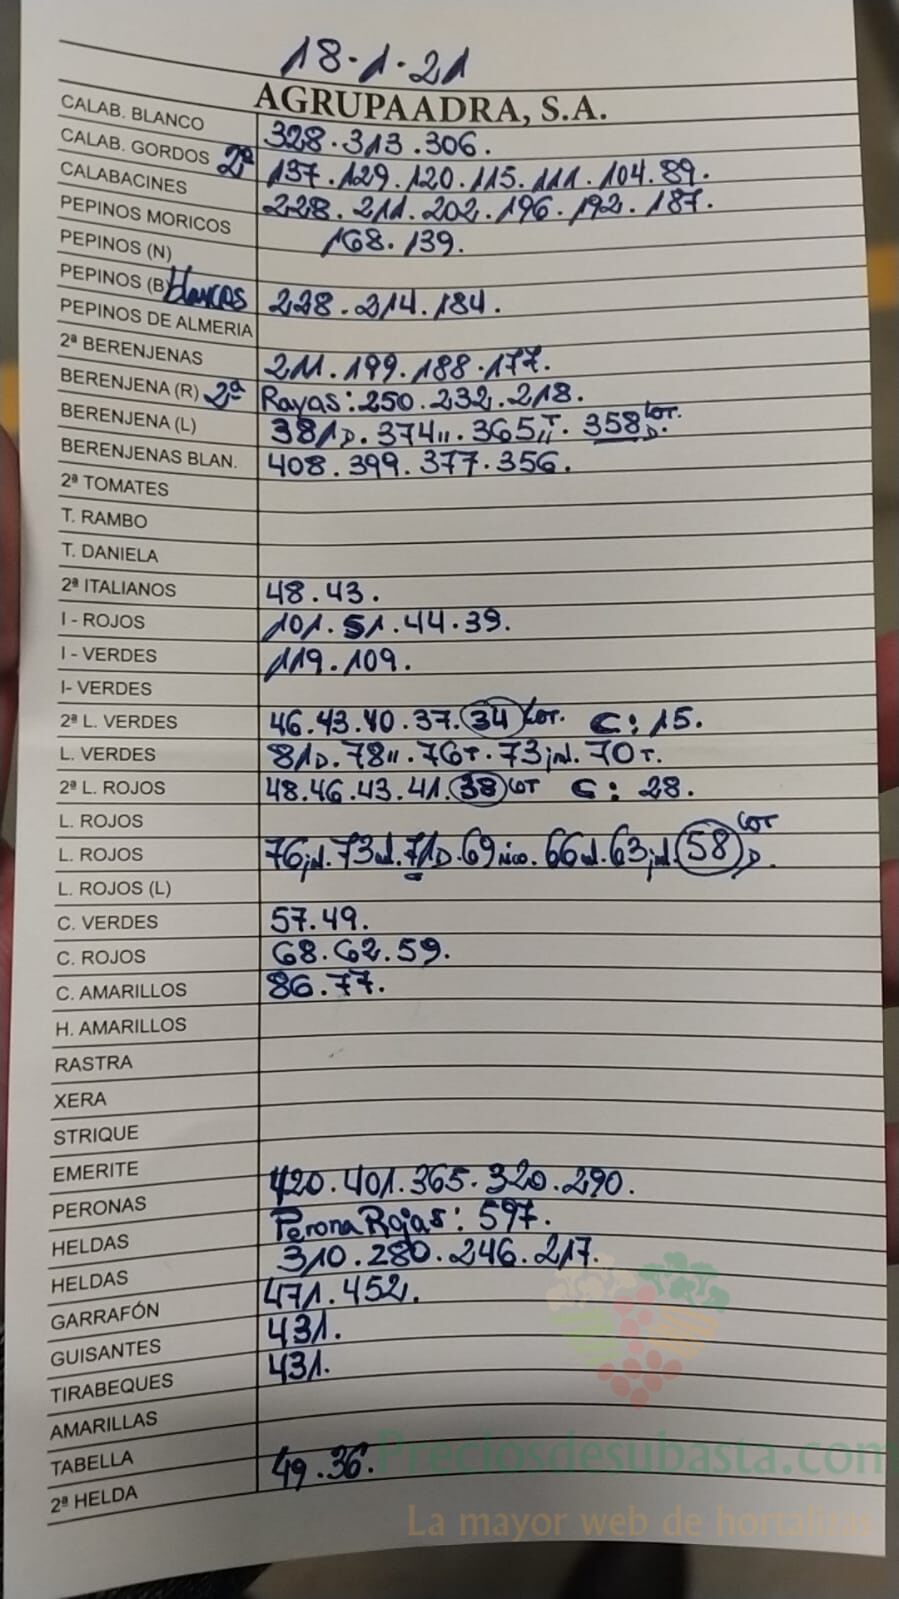 18-1-21
AGRUPAADRA, S.A.
CALAB. BLANCO 328.313.306.
CALAB. GORDOS 2ª 137.129.120.115.111.104.89.
CALABACINES 228.211.202.196.192.187.
PEPINOS MORICOS 168.139.
PEPINOS (N)
PEPINOS (B) blancos 228.214.184.
PEPINOS DE ALMERIA
2ª BERENJENAS 211.199.188.177.
BERENJENA (R) 2ª Rayas: 250.232.218.
BERENJENA (L) 381D.374".365"T.358 COT. D.
BERENJENAS BLAN. 408.399.377.356.
2ª TOMATES
T. RAMBO
T. DANIELA
2ª ITALIANOS 48.43.
I - ROJOS 101.51.44.39.
I - VERDES 119.109.
I- VERDES
2ª L. VERDES 46.43.40.37.34 COT. C: 15.
L. VERDES 81D.78".76T.73ind.70T.
2ª L. ROJOS 48.46.43.41.38 COT C: 28.
L. ROJOS
L. ROJOS 76 .73 .71D.69 .66 .63 .58 COT D.
L. ROJOS (L)
C. VERDES 57.49.
C. ROJOS 68.62.59.
C. AMARILLOS 86.77.
H. AMARILLOS
RASTRA
XERA
STRIQUE
EMERITE 420.401.365.320.290.
PERONAS Perona Rojas: 597.
HELDAS 310.280.246.217.
HELDAS 471.452.
GARRAFÓN 431.
GUISANTES 431.
TIRABEQUES
AMARILLAS
TABELLA 49.36.
2ª HELDA
Preciosdesubasta.com
La mayor web de hortalizas